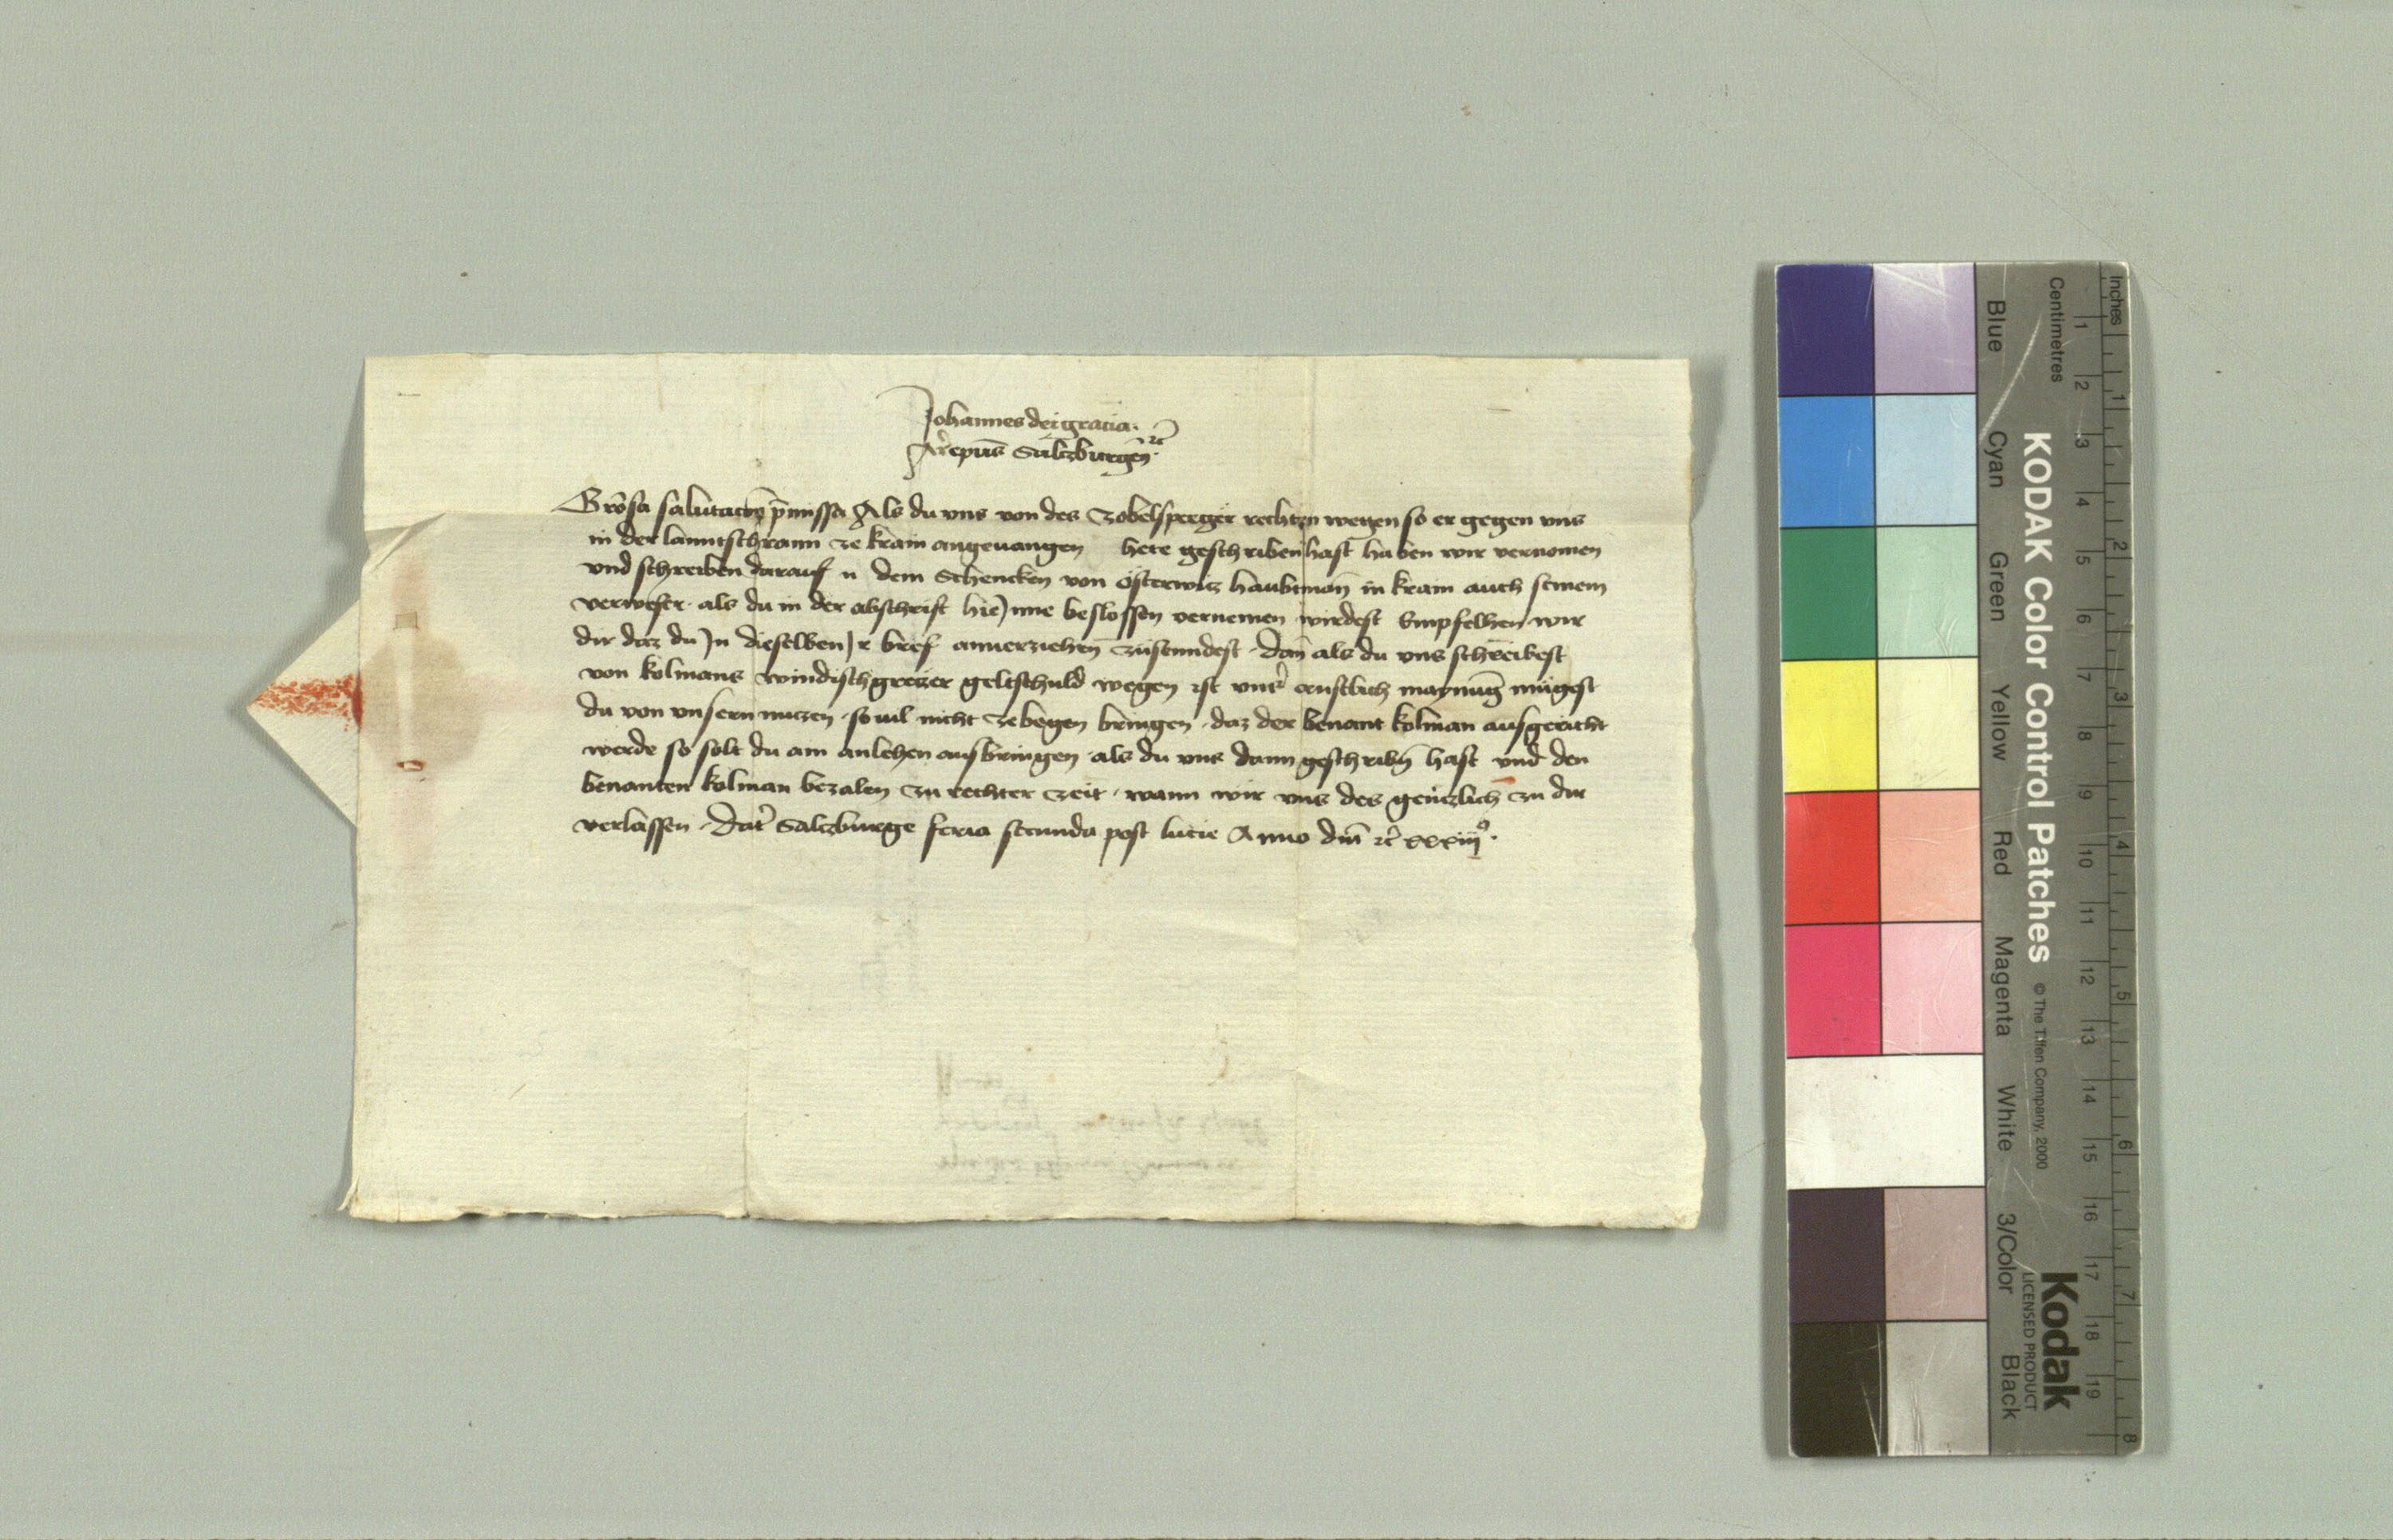 Johannes dei gracia
Archiepūs Salczburgeñ ꝛc̄
Grōsa salutacōn p̄missa Als du vns von des Zobelsperger rechten wegen so er gegen vns
in der lanntschrann ze krain angeuangen hete geschriben hast haben wir vernomen
vnd schreiben darauf dem Schencken von Osterwitz haubtmañ in krain auch seinem
verweser als du in der abschrift hieJnne beslossen vernemen wirdest Empfelhen wir
dir daz du Jn dieselben Jr brief anuerziehen̄ zusenndest dañ als du vns schreibest
von kolmans windischgretzer geltschuld wegen ist vnsr̄ ernstlich maynūg mügest
du von vnsern nutzen souil nicht ze wegen bringen daz der benant kolman ausgericht
werde so solt du ain anlehen ausbringen als du vns dann geschribn̄ hast vnd den
benanten kolman bezalen zu rechter zeit wann wir vns des genczlich zu dir
verlassen Dat̄ Salczburge feria secunda post lucie Anno dm̄ ꝛc̄ xxxiiijº
KODAK Color Control Patches
© The Tiffen Company, 2000
Kodak
LICENSED PRODUCT
Inches 1 2 3 4 5 6 7 8
Centimetres 1 2 3 4 5 6 7 8 9 10 11 12 13 14 15 16 17 18 19
Blue Cyan Green Yellow Red Magenta White 3/Color Black